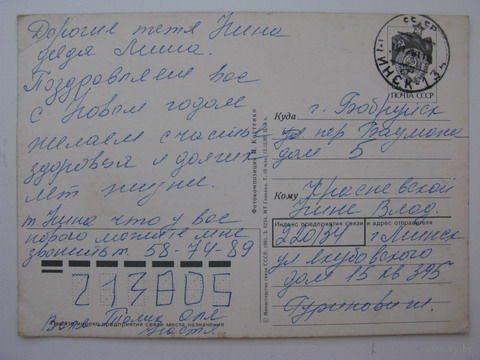 Дорогие тетя Нина
дядя Миша.
Поздравляем вас
с Новым годом
желаем счастья
здоровья и долгих
лет жизни.
т. Нина что у вас
нового можете мне
звонить т. 58-74-89
213805
Вова Толик Оля
Настя
СССР
МИНСК-134
ПОЧТА СССР
Куда г. Бобруйск
ул пер Баумана
дом 5
Кому Красневской
Нине Влад.
Индекс предприятия связи и адрес отправителя
220134 г Минск
ул Якубовского
дом 15 кв 395
Гуринович.
индекс предприятия связи места назначения